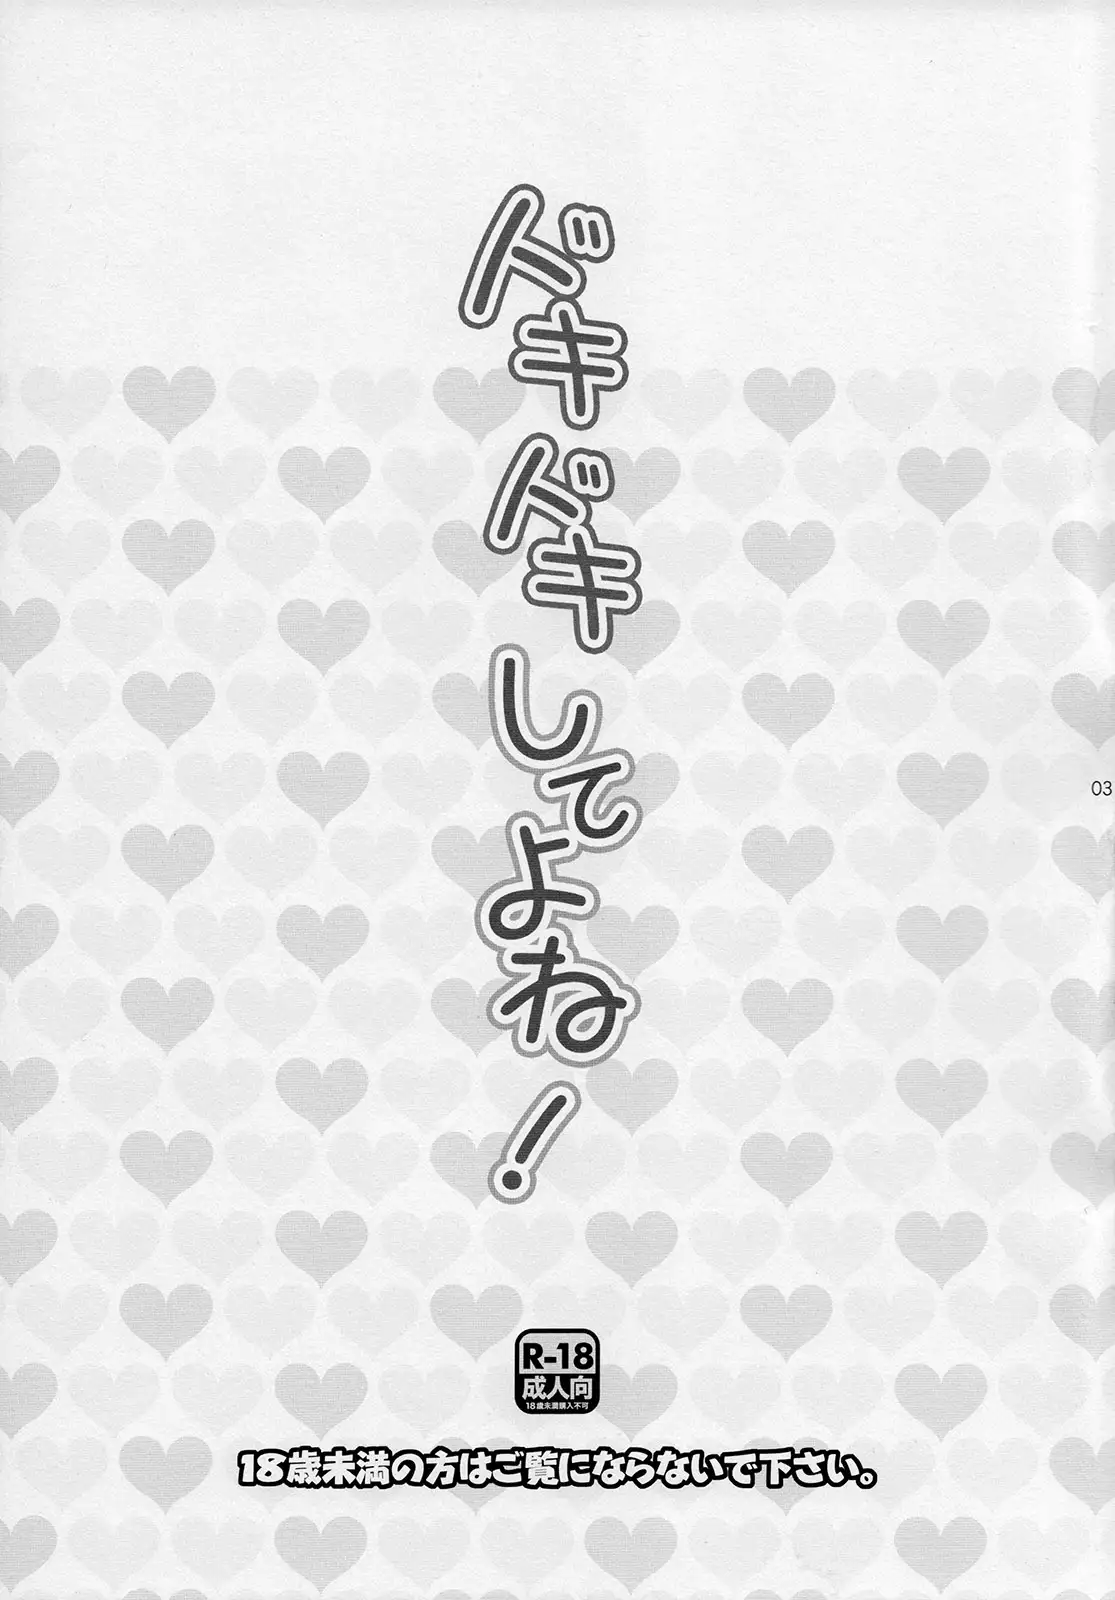 ドキドキしてよね!
03
R-18
成人向
18歳未満購入不可
18歳未満の方はご覧にならないで下さい。